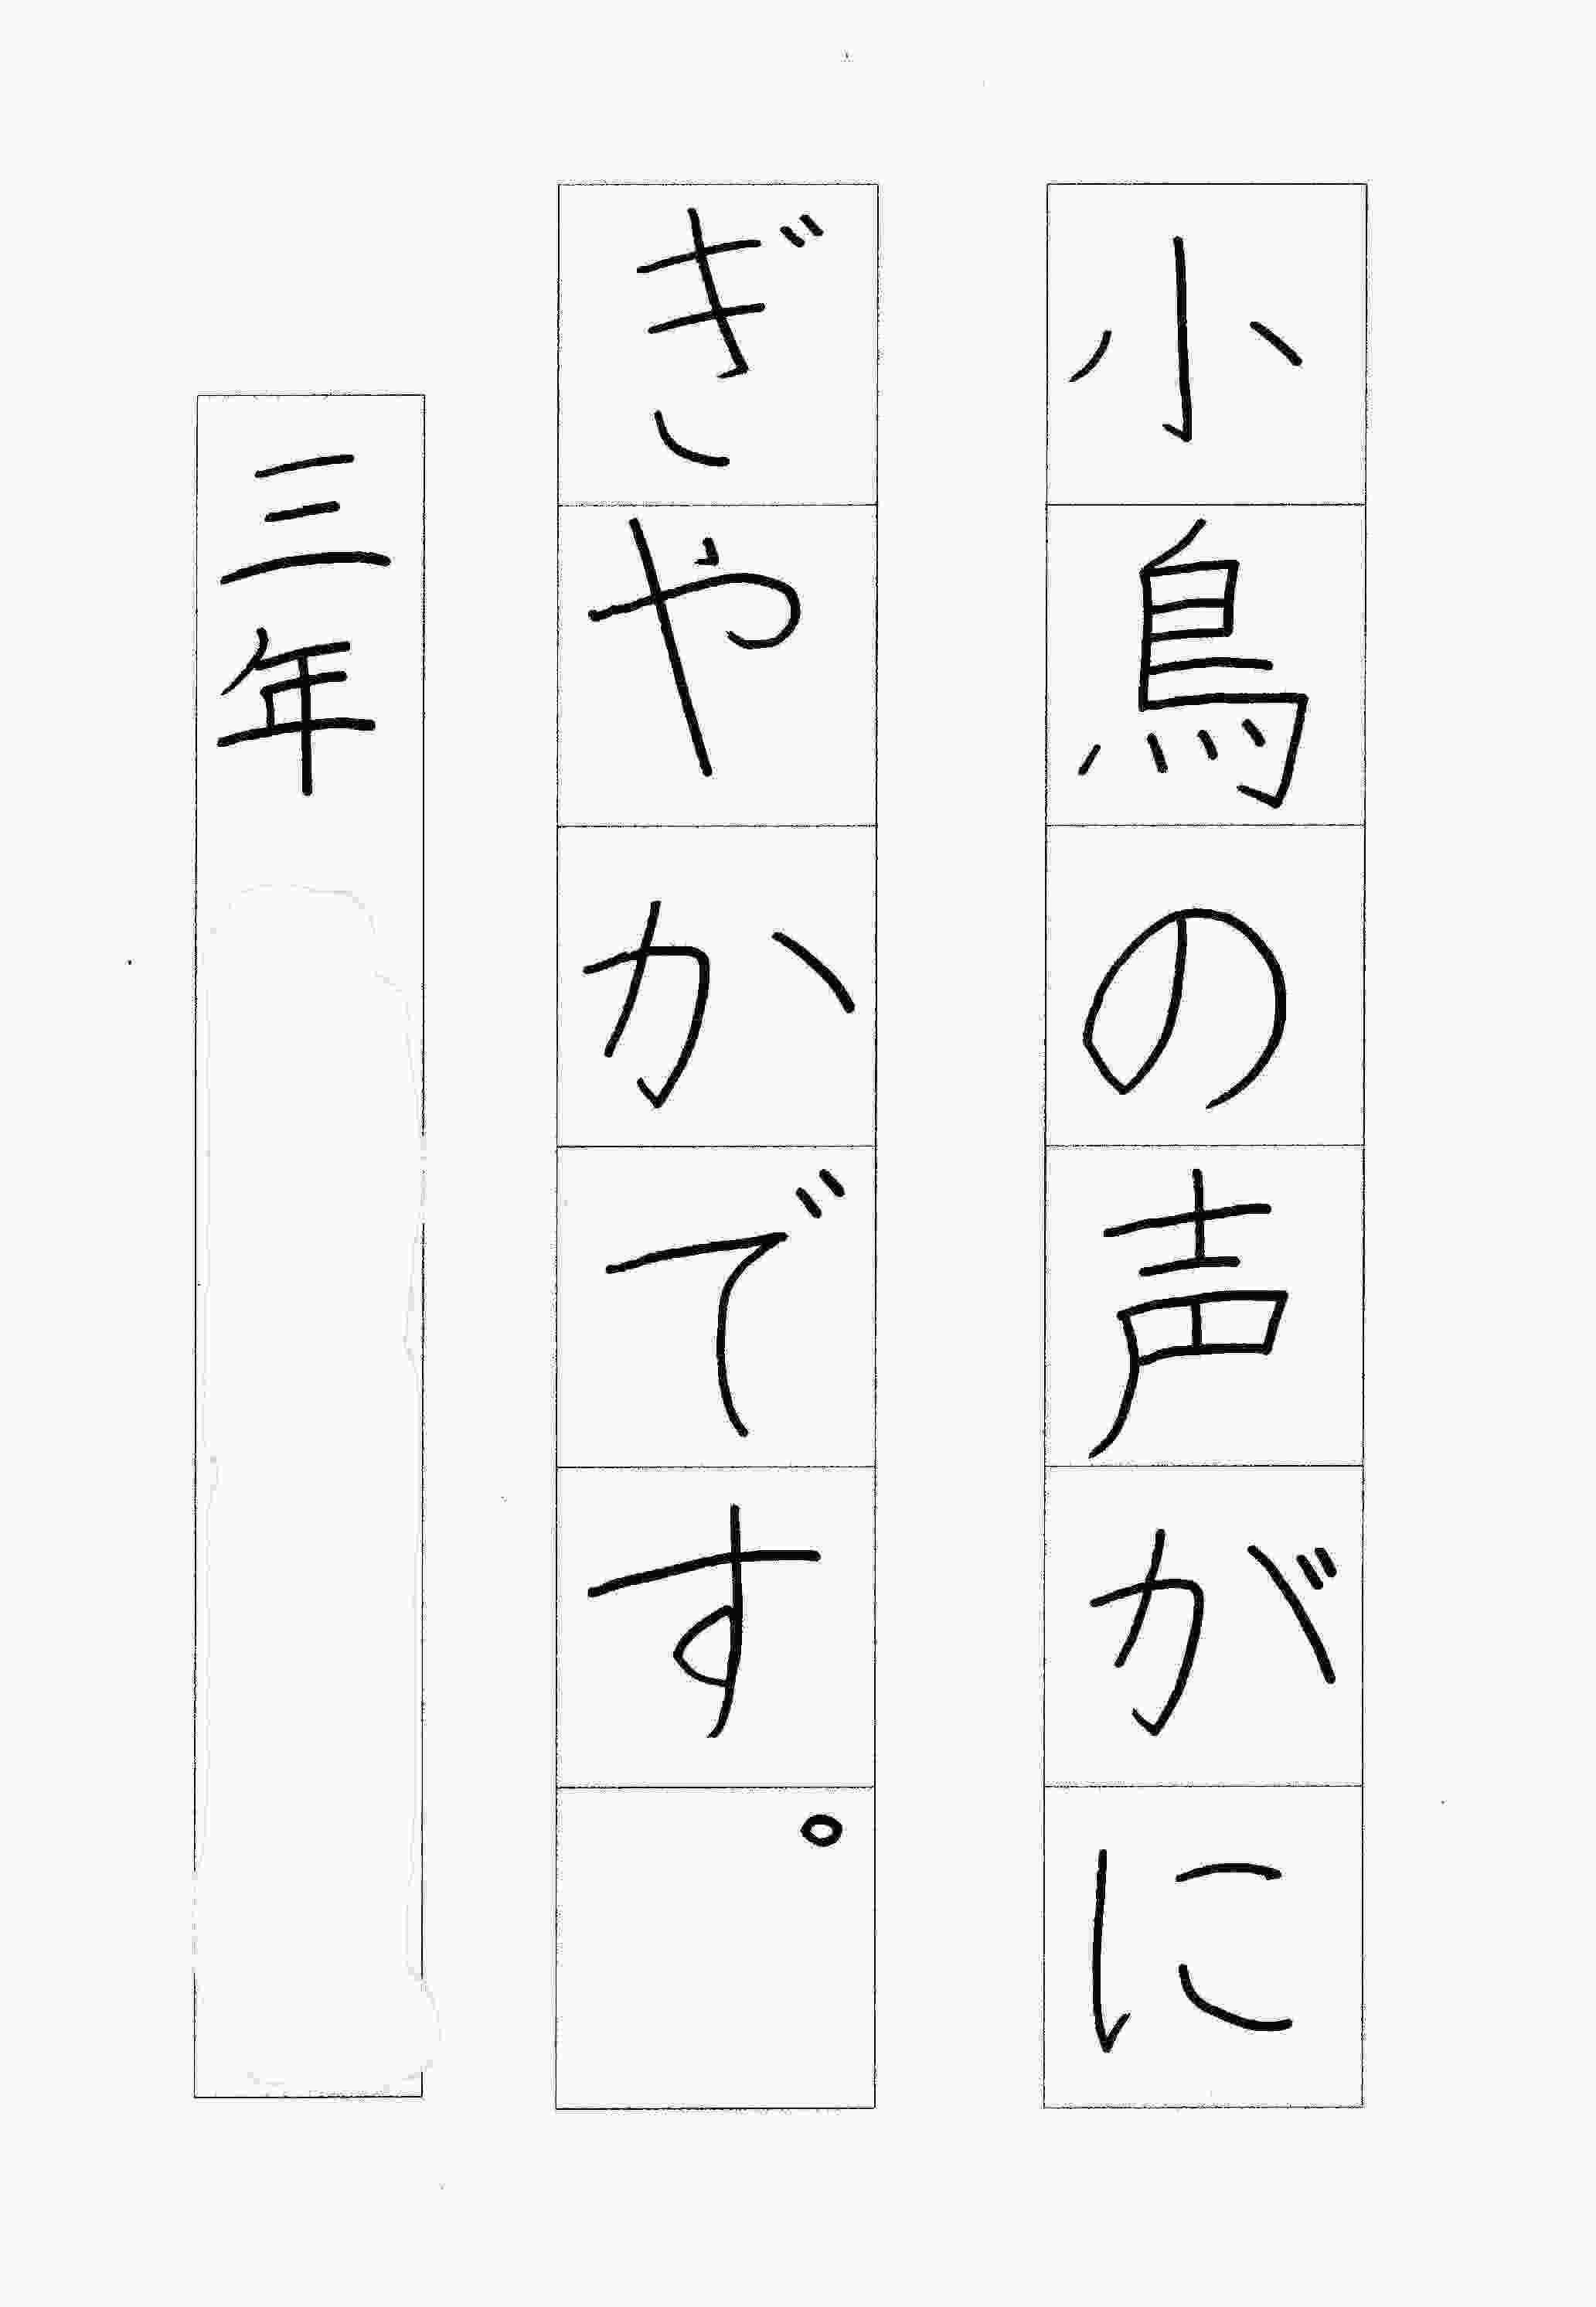 小鳥の声がに
ぎやかです。
三年